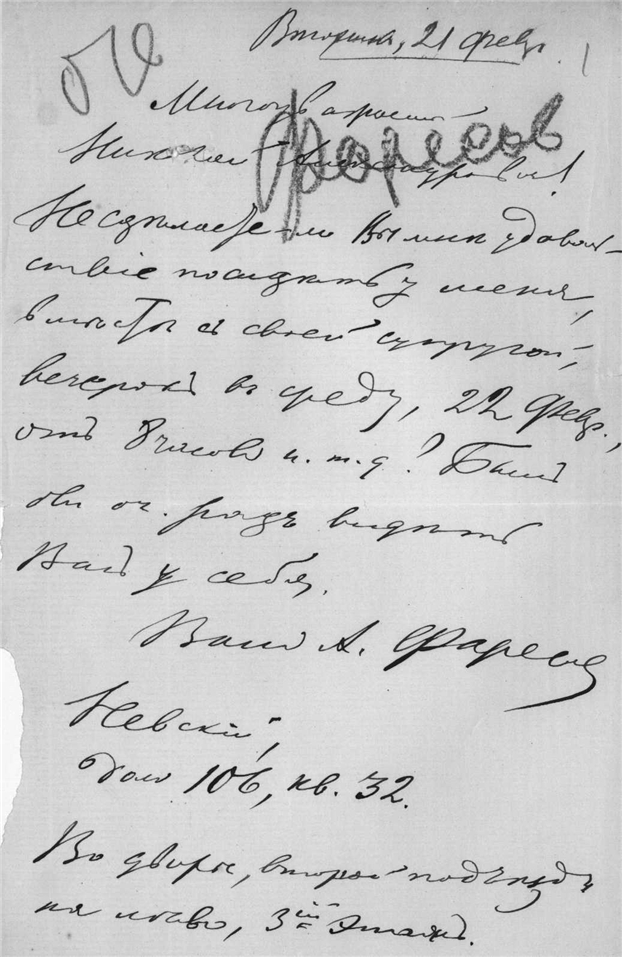 Вторникъ, 21 февр.
Многоуважаемый
Фаресов
Николай Александровичъ!
Не сдѣлаете-ли Вы мнѣ удоволь-
ствіе посидѣть у меня,
вмѣстѣ съ своей супругой,
вечеркомъ въ среду, 22 февр.,
отъ 8 часовъ и. т. д? Былъ
бы оч. радъ видѣть
Васъ у себя.
Вашъ А. Фаресовъ
Невскій,
домъ 106, кв. 32.
Во дворѣ, второй подъѣздъ
на лѣво, 3ій этажъ.